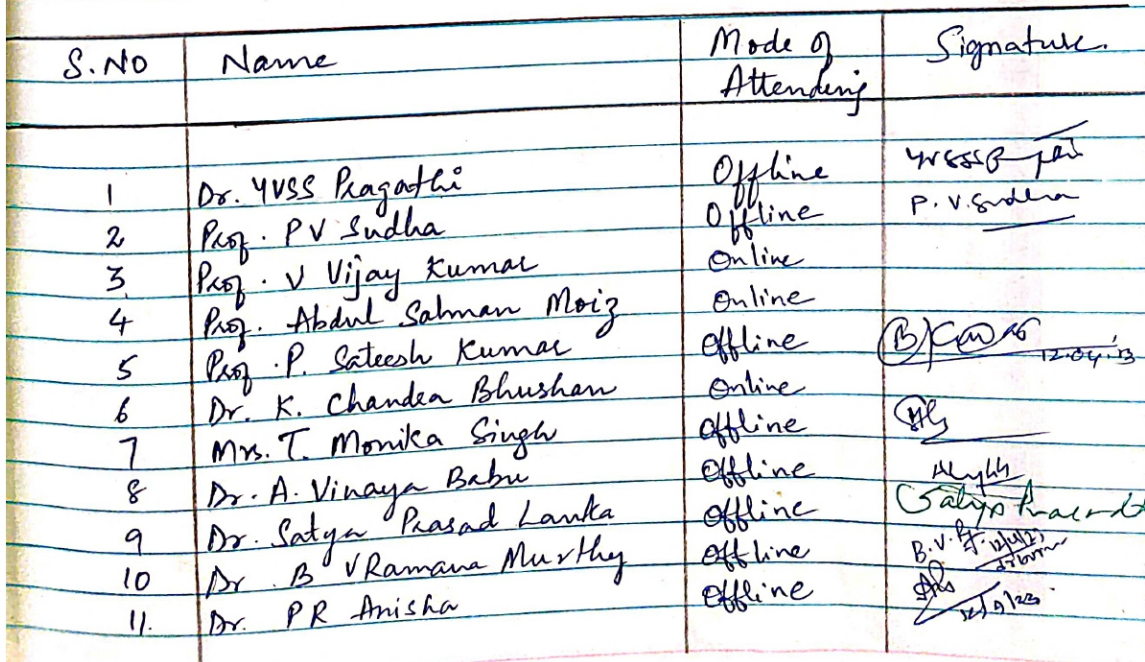 S.No Name Mode of Attending Signature.
1 Dr. YVSS Pragathi Offline
2 Prof. PV Sudha Offline P. V. Sudha
3 Prof. V Vijay Kumar Online
4 Prof. Abdul Salman Moiz Online
5 Prof. P. Sateesh Kumar Offline
6 Dr. K. Chandra Bhushan Online
7 Mrs. T. Monika Singh Offline
8 Dr. A. Vinaya Babu Offline
9 Dr. Satya Prasad Lanka Offline
10 Dr. B V Ramana Murthy Offline B.V.
11. Dr. PR Anisha Offline